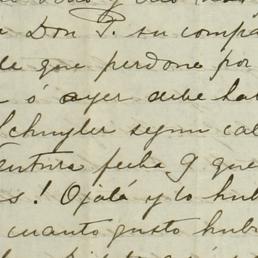 Don P. su compa
de que perdone por
a ó ayer debe ha
Schuyler segun ca
entura fecha 9 que
s! Ojalá y lo hub
cuanto gusto hub